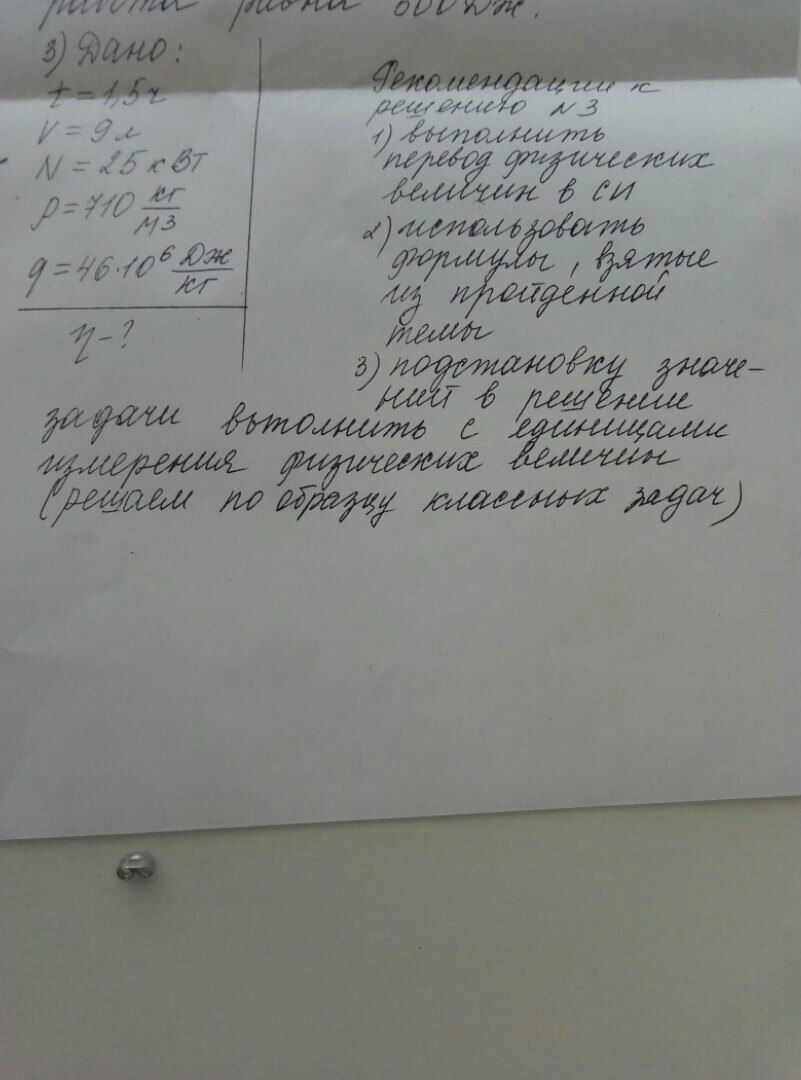 работа равна 600 Дж.
3) Дано:
t = 1,5 ч
V = 9 л
N = 25 кВт
ρ = 710 кг/м3
q = 46·10⁶ Дж/кг
η - ?
Рекомендации к
решению №3
1) выполнить
перевод физических
величин в СИ
2) использовать
формулы, взятые
из пройденной
темы
3) подстановку значе-
ний в решении
задачи выполнить с единицами
измерения физических величин
(решаем по образцу классных задач)